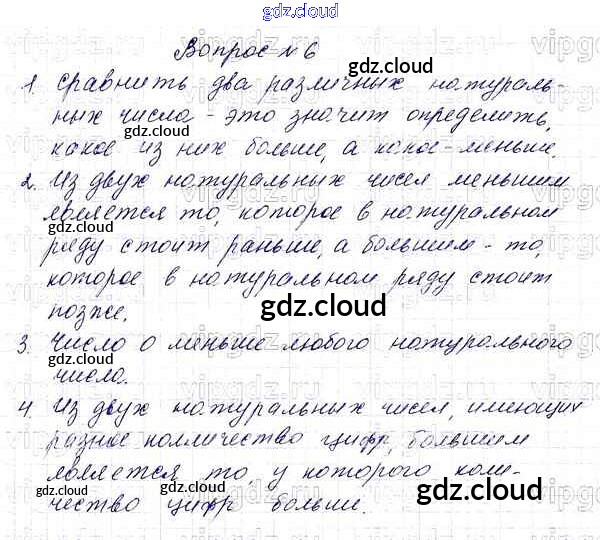 gdz.cloud
Вопрос №6
1. Сравнить два различных натураль-
ных числа - это значит определить,
какое из них больше, а какое - меньше.
2. Из двух натуральных чисел меньшим
является то, которое в натуральном
ряду стоит раньше, а большим - то,
которое в натуральном ряду стоит
позже.
3. Число 0 меньше любого натурального
числа.
4. Из двух натуральных чисел, имеющих
разное колличество цифр, большим
является то, у которого коли-
чество цифр больше.